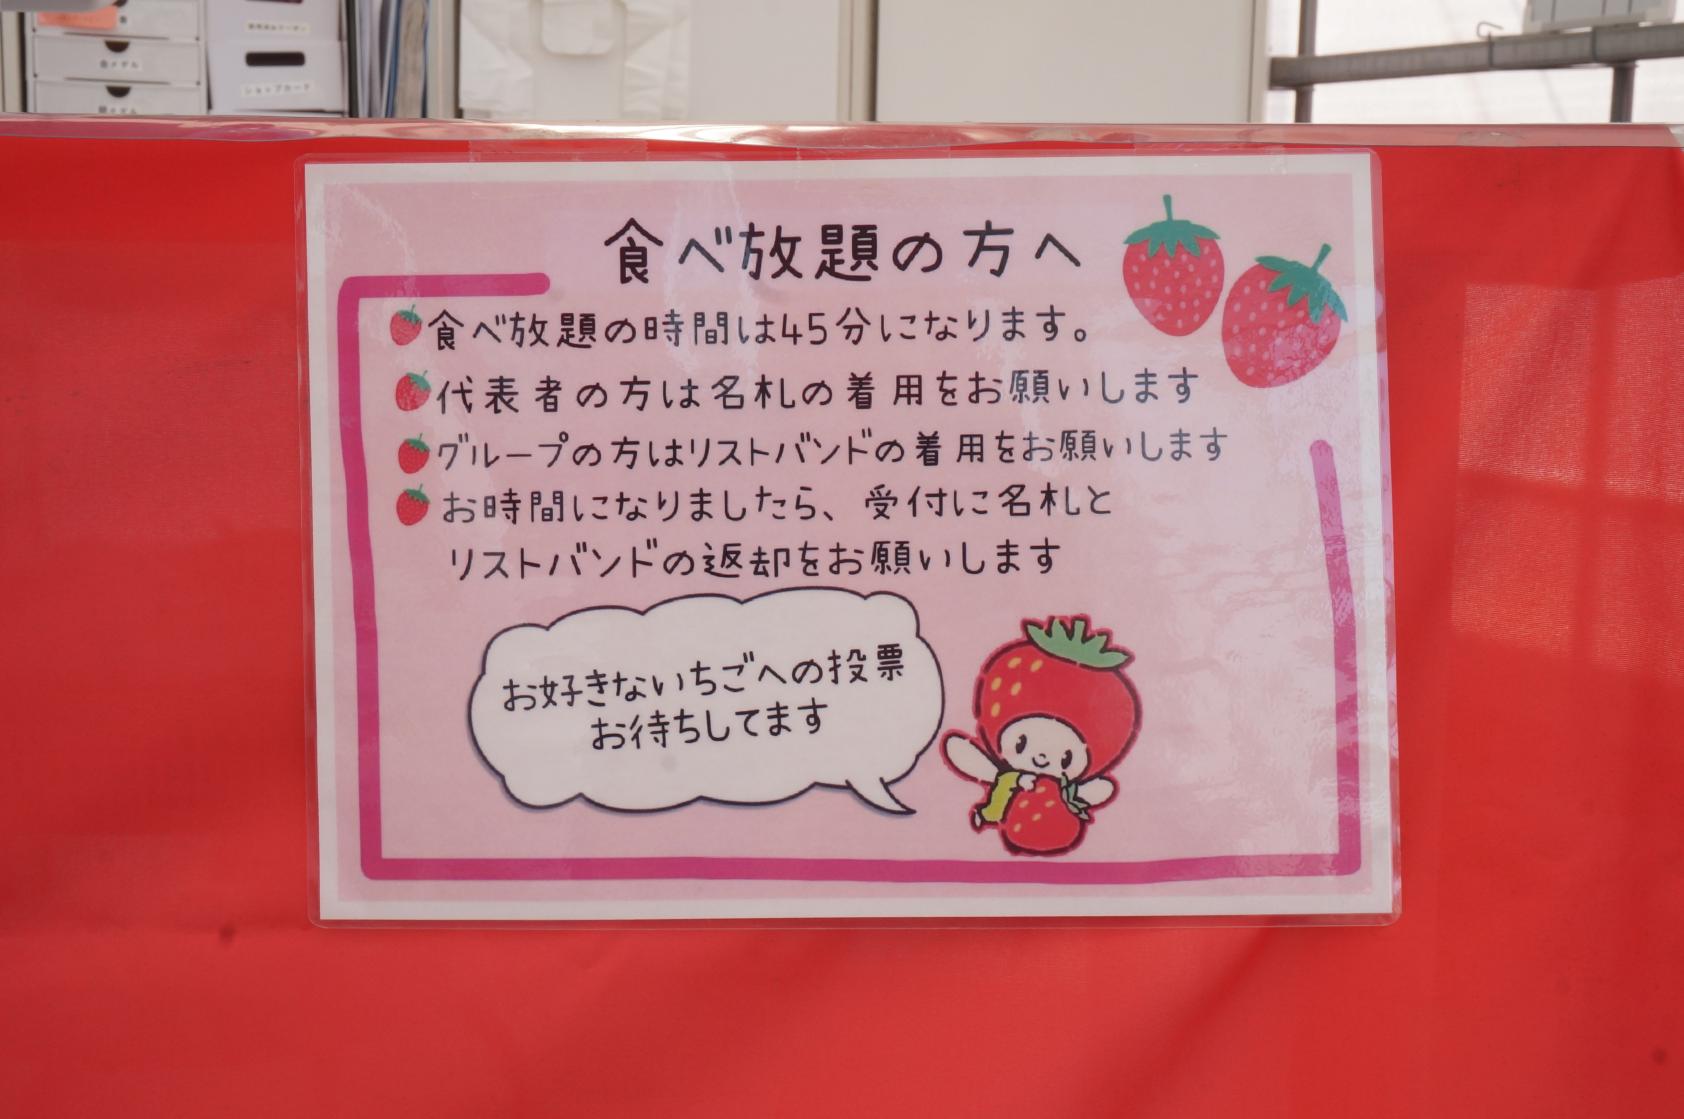 金メダル
ショップカード
食べ放題の方へ
食べ放題の時間は45分になります。
代表者の方は名札の着用をお願いします
グループの方はリストバンドの着用をお願いします
お時間になりましたら、受付に名札と
リストバンドの返却をお願いします
お好きないちごへの投票
お待ちしてます